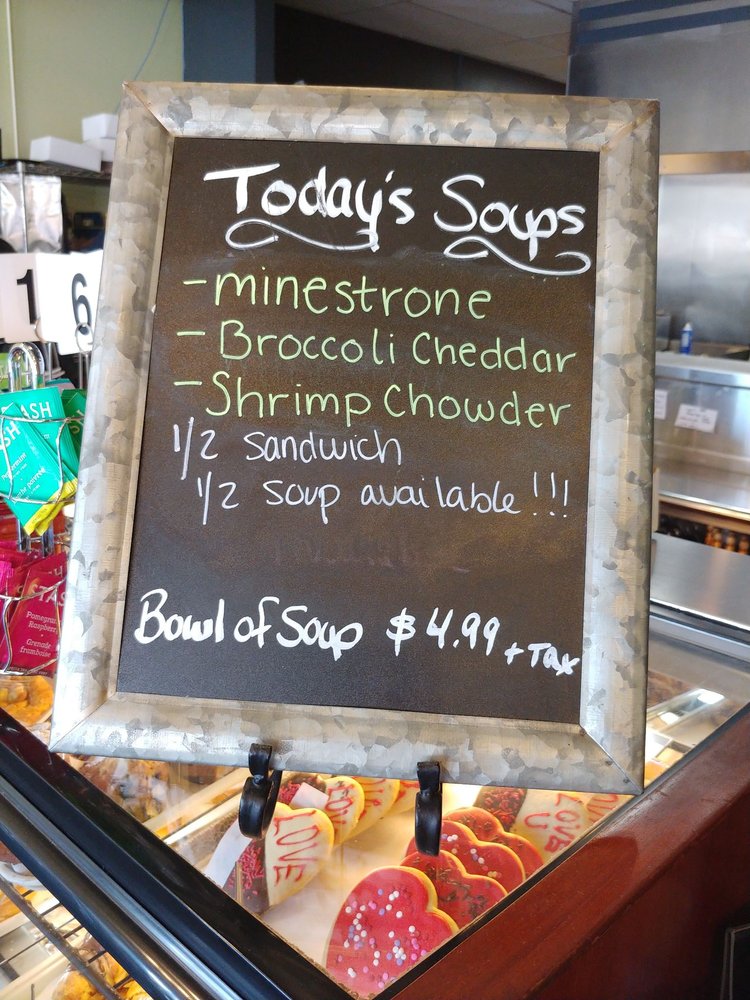 Today's Soups
- minestrone
- Broccoli Cheddar
- Shrimp Chowder
1/2 sandwich
1/2 soup available!!!
Bowl of Soup $4.99 + Tax
1
6
STASH
Pomegranate
Raspberry
Grenade
framboise
LOVE
LOVE
U